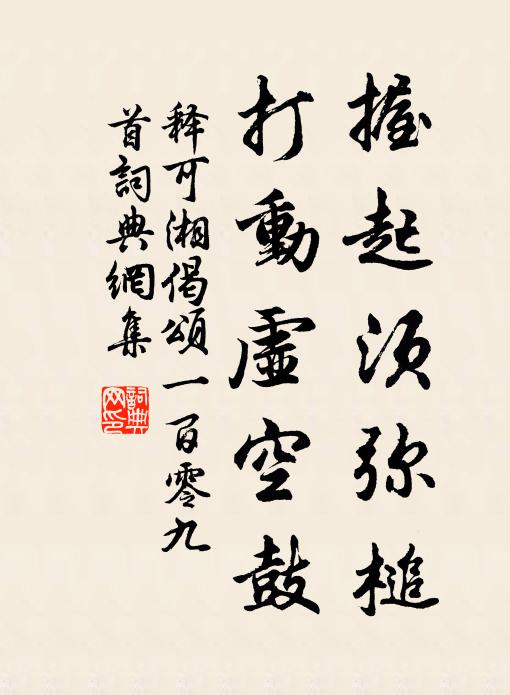 握起须弥槌
打動虛空鼓
释可湘偈頌一百零九
首詞典網集
詞典
网印